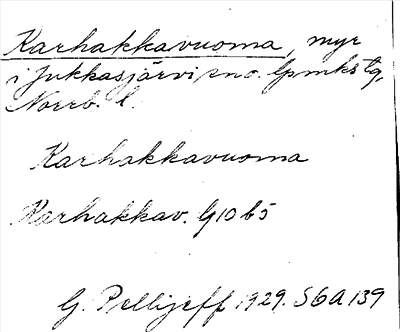 Karhakkavuoma, myr
i Jukkasjärvi sno. Gpmks tg,
Norrb. l.
Karhakkavuoma
Karhakkav. G10 b5
G. Pellijeff 1929. S6A 139